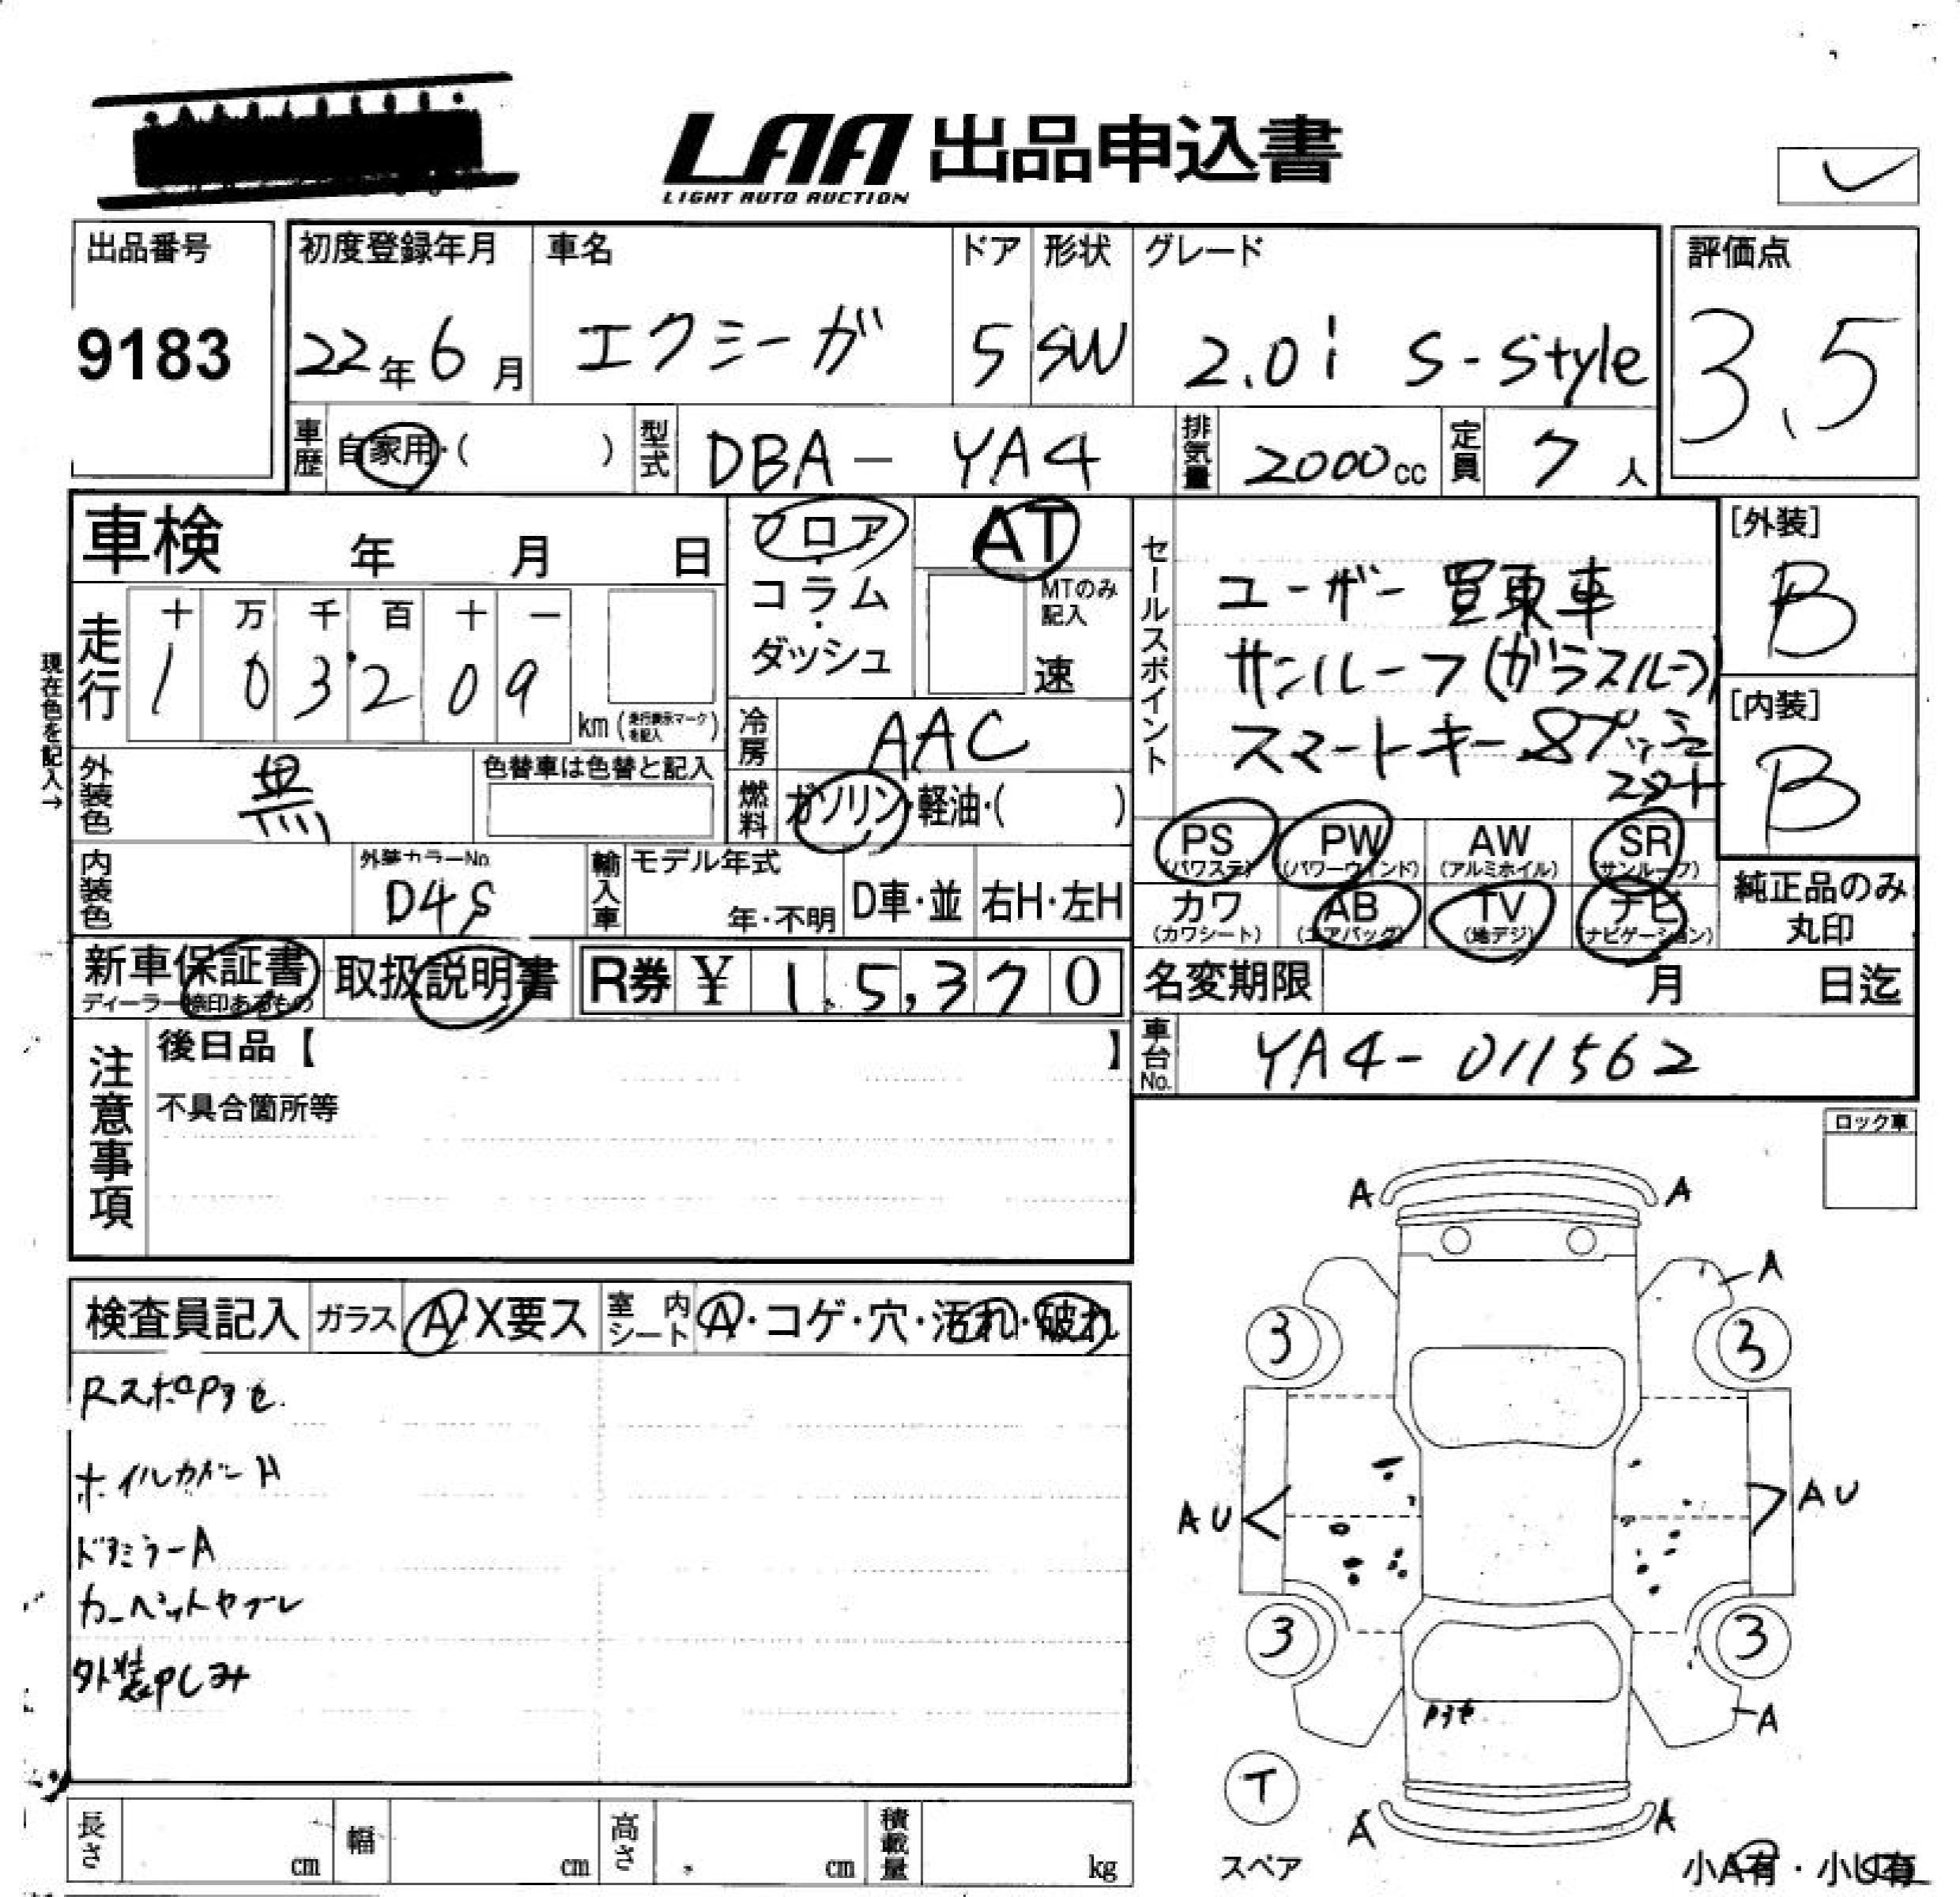 LAA 出品申込書
LIGHT AUTO AUCTION
出品番号
9183
初度登録年月
22年6月
車名
エクシーガ
ドア
5
形状
SW
グレード
2.0i S-Style
評価点
3.5
車歴
自家用・( )
型式
DBA-YA4
排気量
2000cc
定員
7人
車検 年 月 日
フロア・コラム・ダッシュ
AT
MTのみ記入
速
セールスポイント
ユーザー買取車
サンルーフ(ガラスルーフ)
スマートキー&プッシュ
スタート
[外装]
B
[内装]
B
現在色を記入→
走行
十 万 千 百 十 一
1 0 3 2 0 9
km (走行表示マークを記入)
冷房
AAC
外装色
黒
色替車は色替と記入
燃料
ガソリン・軽油・( )
PS (パワステ) PW (パワーウインド) AW (アルミホイル) SR (サンルーフ)
カワ (カワシート) AB (エアバッグ) TV (地デジ) ナビ (ナビゲーション)
純正品のみ丸印
内装色
外装カラーNo.
D4S
輸入車
モデル年式
年・不明
D車・並
右H・左H
新車保証書
ディーラー捺印あるもの
取扱説明書
R券 ¥ 1 5,3 7 0
名変期限 月 日迄
車台No.
YA4-011562
注意事項
後日品【 】
不具合箇所等
ロック車
検査員記入
ガラス A・X要ス
室内シート A・コゲ・穴・汚れ・破れ
RスポロPアセ
ホイルカバーA
ドアミラーA
カーペットヤブレ
外装Pシミ
A A
A
3 3
AU AU
3 3
Pアセ
A
T
スペア
A A
小A有・小U有
長さ cm
幅 cm
高さ cm
積載量 kg